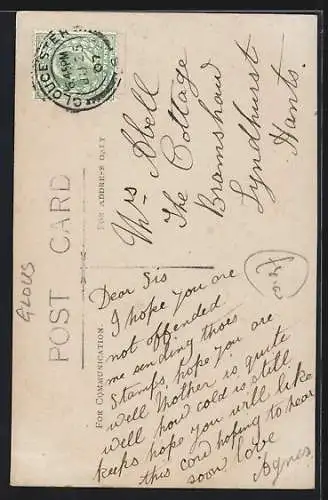 GLOUCESTER
GLOUS
POST CARD
FOR COMMUNICATION.
FOR ADDRESS ONLY
Mrs Abell
The Cottage
Bramshaw
Lyndhurst
Hants.
Dear Sis
I hope you are
not offended
me sending thoes
stamps, hope you are
well Mother is quite
well how cold is still
keeps hope you will like
this card hoping to hear
soon love
Agnes